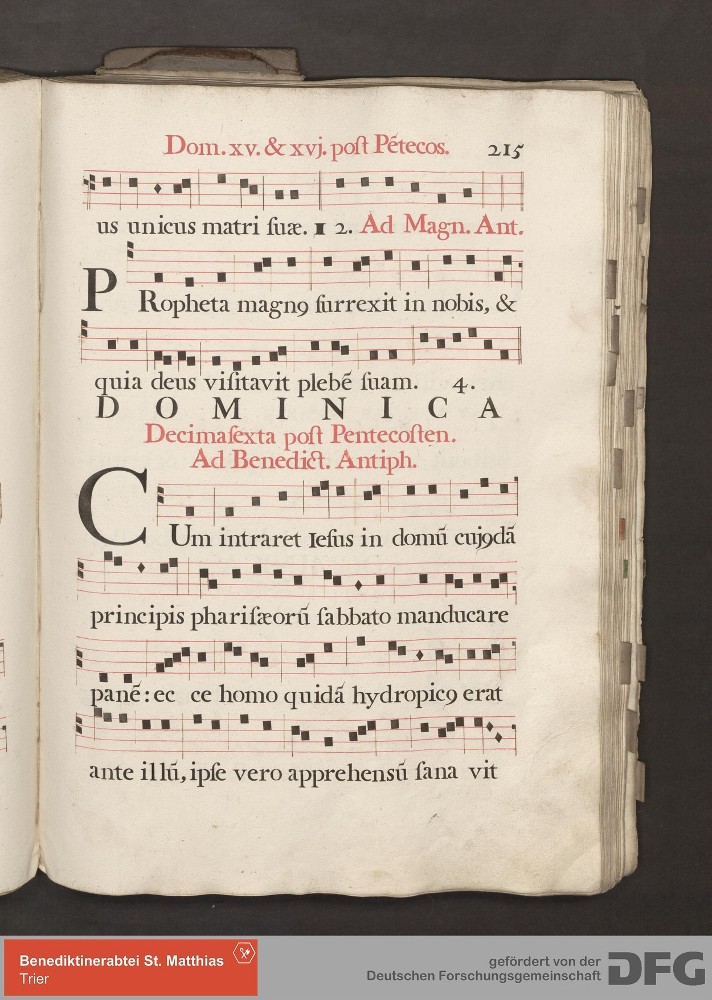 Dom. xv. & xvj. poſt Pẽtecos. 215
us unicus matri ſuæ. 1 2. Ad Magn. Ant.
PRopheta magnꝯ ſurrexit in nobis, &
quia deus viſitavit plebẽ ſuam. 4.
DOMINICA
Decimaſexta poſt Pentecoſten.
Ad Benedict. Antiph.
CUm intraret Ieſus in domũ cujꝯdã
principis phariſæorũ ſabbato manducare
panẽ: ec ce homo quidã hydropicꝯ erat
ante illũ, ipſe vero apprehensũ ſana vit
Benediktinerabtei St. Matthias
Trier
gefördert von der
Deutschen Forschungsgemeinschaft
DFG